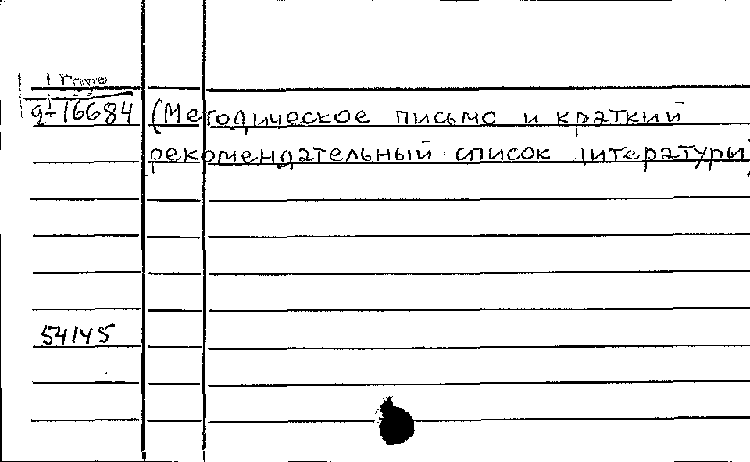 g-16684 (Методическое письмо и краткий
рекомендательный список литературы)
54145